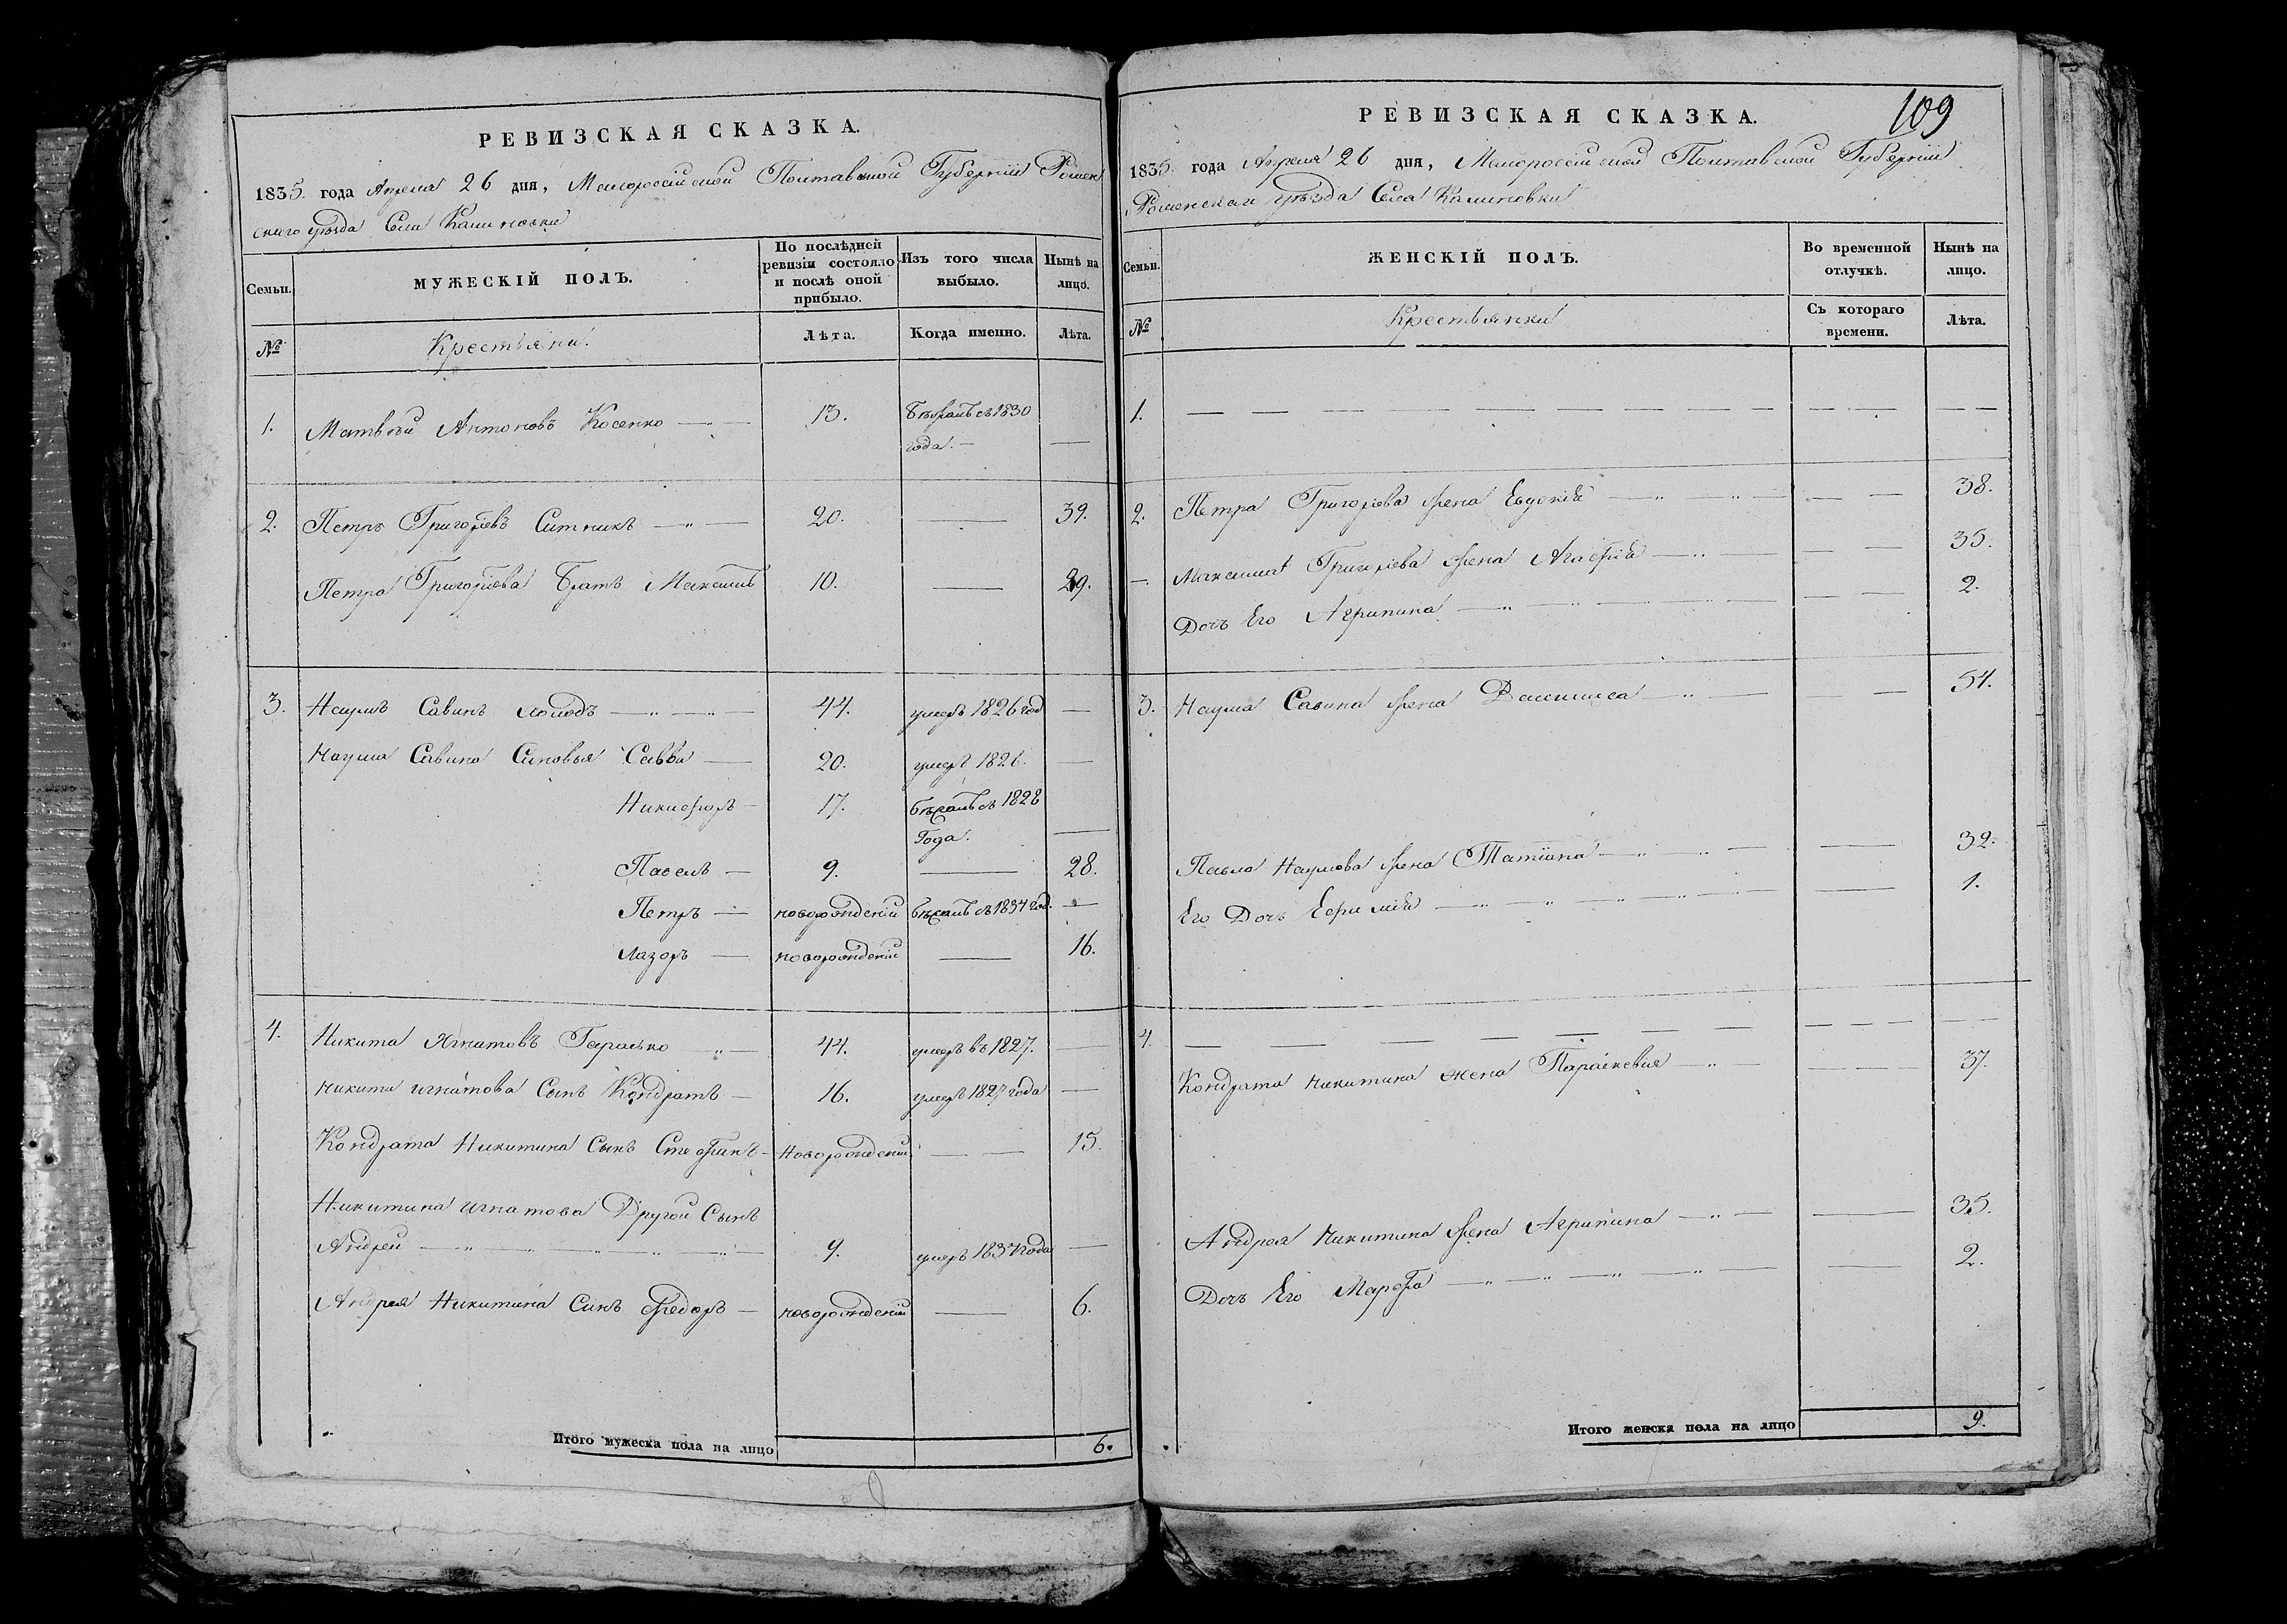 РЕВИЗСКАЯ СКАЗКА.
1835 года Апреля 26 дня, Малороссійской Полтавской Губерніи Ромен
скаго уѣзда Села Калиновки
Семьи. МУЖЕСКІЙ ПОЛЪ. По послѣдней ревизіи состояло и послѣ оной прибыло. Изъ того числа выбыло. Нынѣ на лицо.
№ Крестьяни. Лѣта. Когда именно. Лѣта.
1. Матвѣй Антоновъ Косенко 13. Бѣжалъ съ 1830
года. —
2. Петръ Григоріевъ Ситникъ 20. — 39.
Петра Григоріева Братъ Максимъ 10. — 29.
3. Наумъ Савинъ 44. умеръ 1826 год —
Наума Савина Синовья Савва 20. умеръ 1826. —
Никифоръ 17. бѣжалъ съ 1828
Года. —
Павелъ 9. — 28.
Петръ новорожденій бѣжалъ съ 1834 год. —
Лазоръ новорожденій — 16.
4. Никита Игнатовъ Гарасько 44. умеръ въ 1827. —
Никити Игнатова Сынъ Кондратъ 16. умеръ 1827 года —
Кондрата Никитина Сынъ Стефанъ Новорожденій — 15.
Никитина Игнатова Другой Сынъ
Андрей 9. умеръ 1834 года —
Андрея Никитина Синъ Федоръ новорожденій — 6.
Итого мужеска пола на лицо 6.
109
РЕВИЗСКАЯ СКАЗКА.
1835 года Апреля 26 дня, Малороссійской Полтавской Губерніи
Роменскаго уѣзда Села Калиновки
Семьи. ЖЕНСКІЙ ПОЛЪ. Во временной отлучкѣ. Нынѣ на лицо.
№ Крестьянки Съ котораго времени. Лѣта.
1. — — —
2. Петра Григоріева жена Евдокія — 38.
— Максима Григоріева жена Агафія — 35.
Дочъ Его Агрипина — 2.
3. Наума Савина жена Василиса — 54.
Павла Наумова жена Татіана — 32.
Его Дочъ Ефимія — 1.
4. — — —
Кондрата Никитина жена Параскевия — 37.
Андрея Никитина жена Агрипина — 35.
Дочъ Его Марфа — 2.
Итого женска пола на лицо 9.